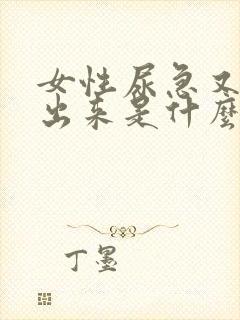 女性尿急又
出来是什麼
丁墨